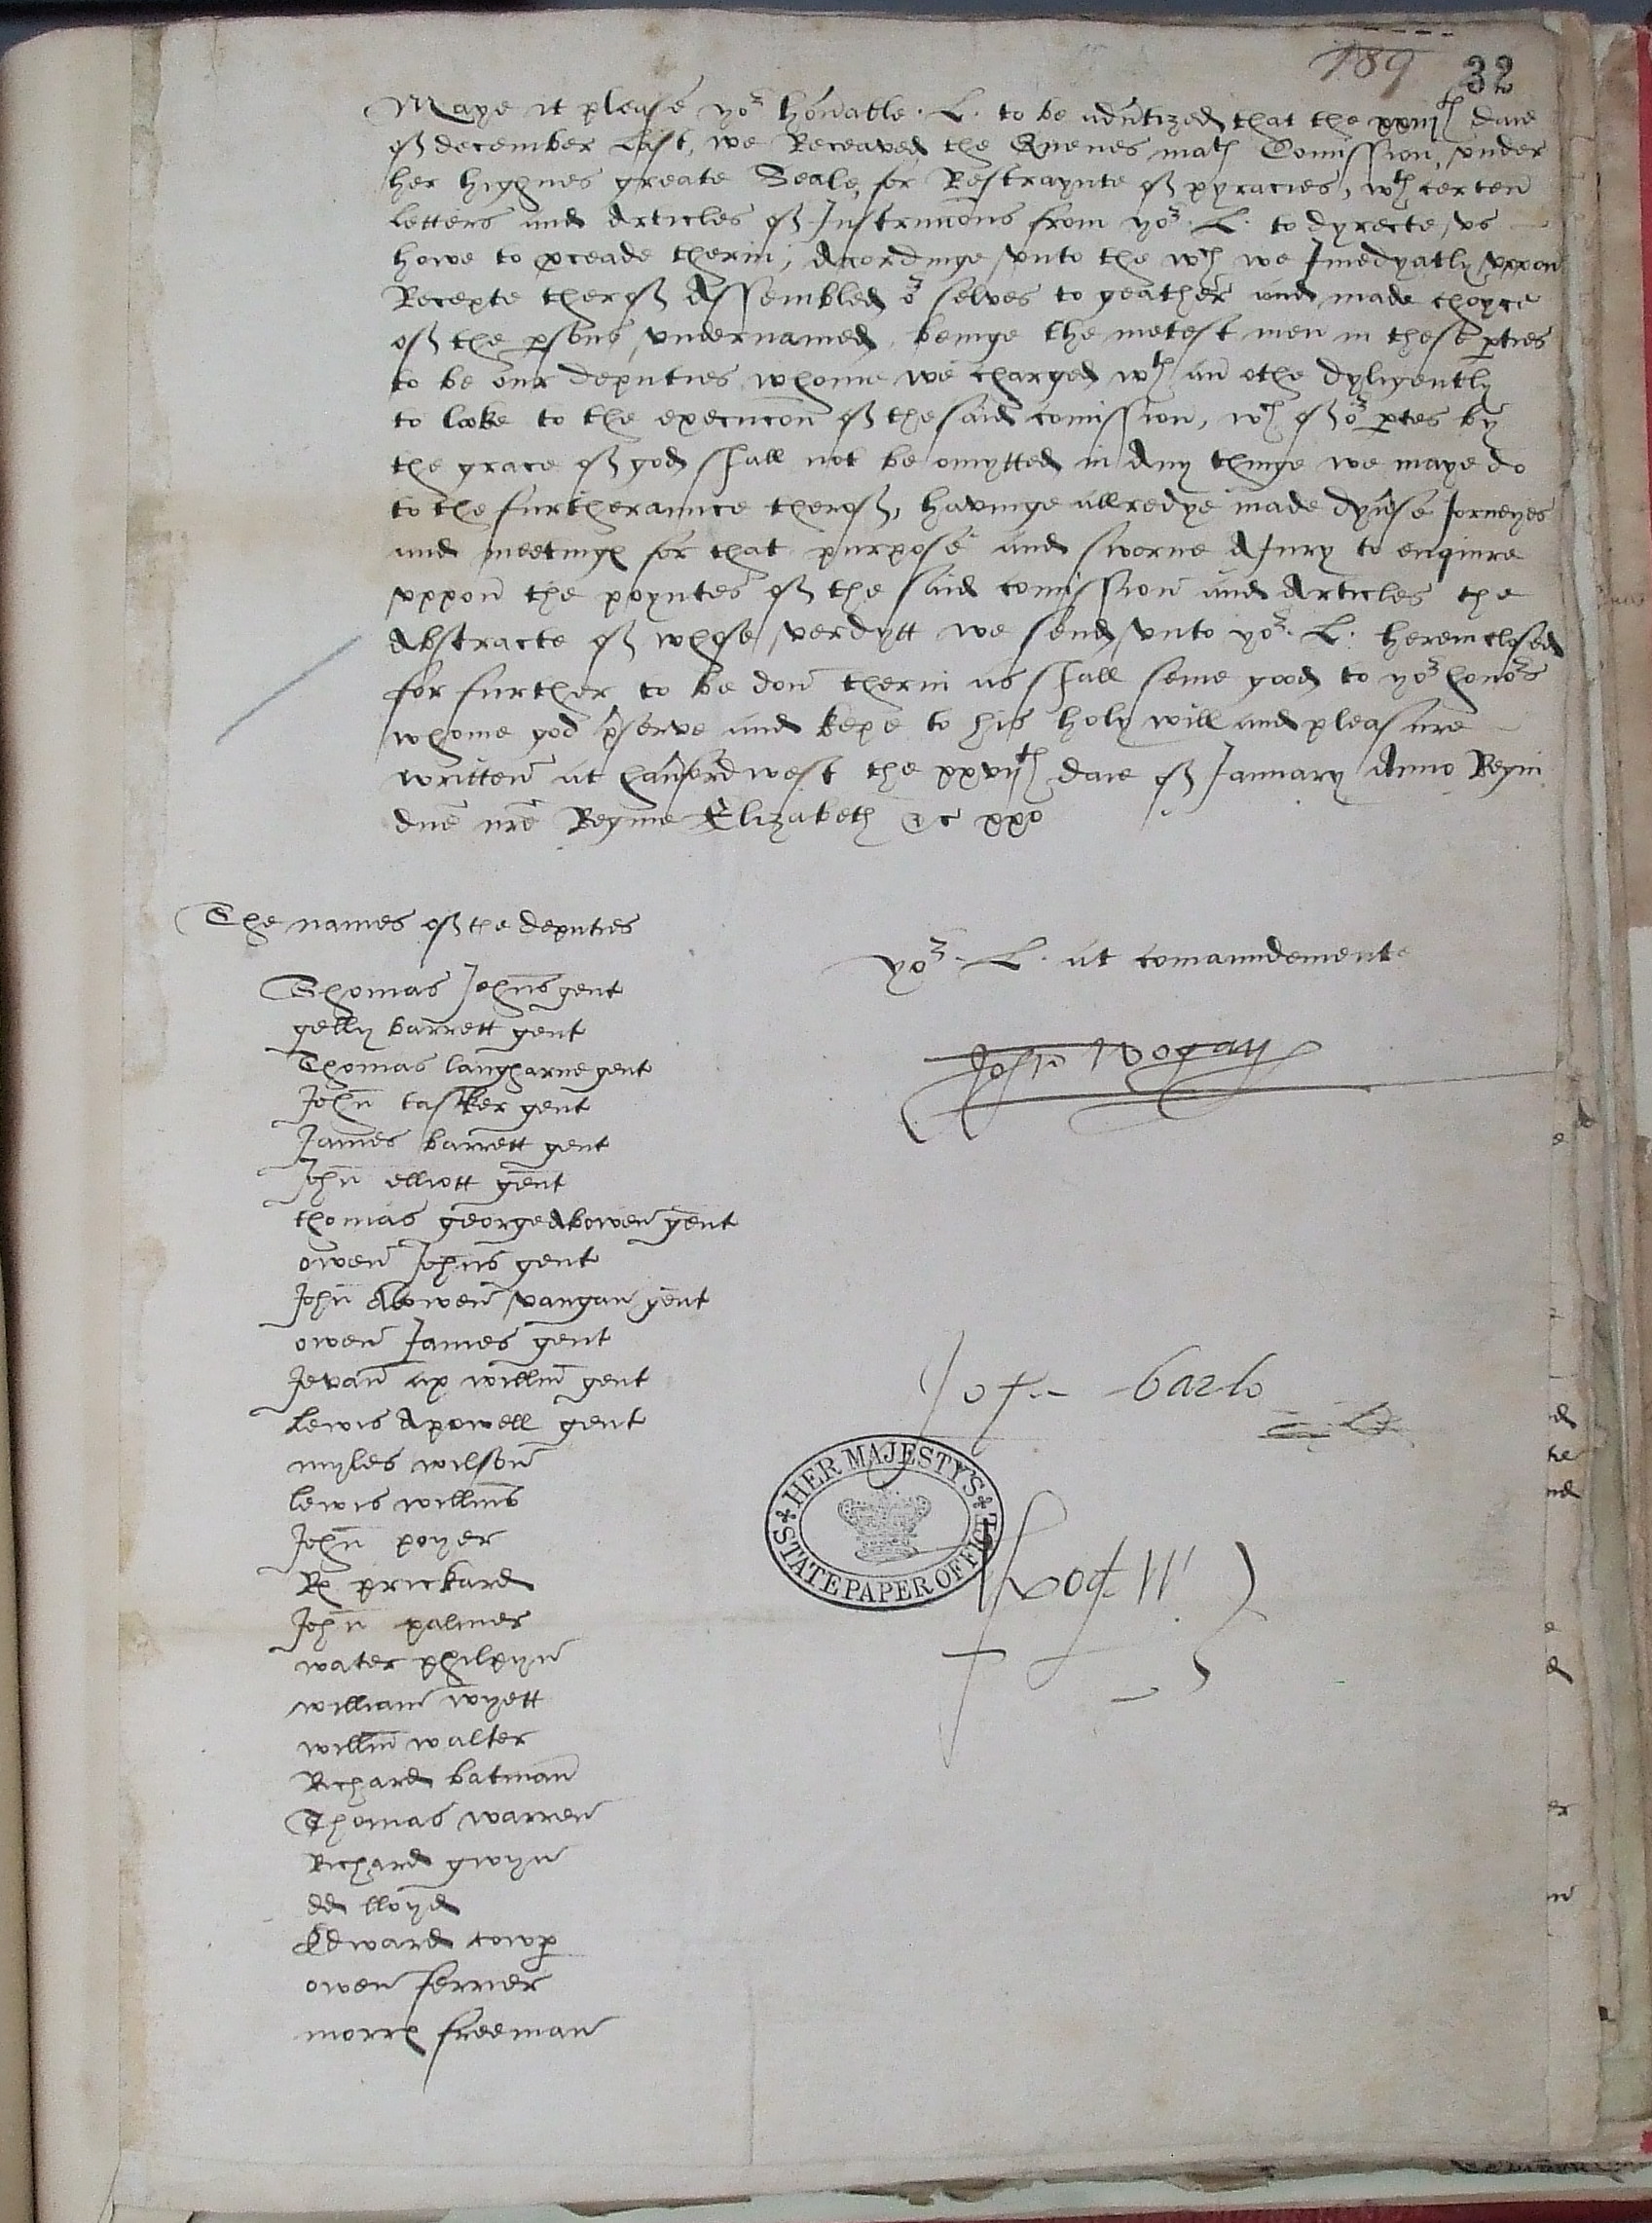 189 32
Maye it please yor honable L. to be advtized that the xxiijth daie
of december last, we Receaved the Quenes matꝭ Comission, under
her highnes greate Seale, for Restraynte of pyracies, wth certen
letters and Articles of Instrucons from yor L. to dyrecte vs
howe to pceade therin, Acordinge vnto the wch we Imedyatly vppon
Recepte therof Assembled or selves to geather and made choyce
of the psons vndernamed, beinge the metest men in these pties
to be our deputies whome we charged wth an othe dylygently
to looke to the execucon of the said comission, wch of or ptes by
the grace of god shall not be omytted in Any thinge we maye do
to the furtheraunce therof, havinge allredye made dyvse Jorneyes
and meetingꝭ for that purpose and sworne A Jury to enquire
vppon the poyntes of the said comission and Articles the
Abstracte of whose verdytt we send vnto yor L. hereinclosed
for further to be don therin as shall seme good to yor honors
whome god pserve and kepe to his holy will and pleasure
written at haverfordwest the xxvijth daie of January Anno Regni
dne nre Regine Elizabeth &c xxo
The names of the deputies
yor L. at comaundemente
Thomas Johns gent
gelly barrett gent
Thomas langharne gent
John tasker gent
James barrett gent
John elliott gent
thomas george Abowen gent
owen Johns gent
John Abowen vaugan gent
owen James gent
Jevan ap willm gent
Lewis Apowell gent
myles wilson
lewis willms
John poyer
Rꝭ prickard
John palmer
water philpyn
william wyett
willm walter
Richard batman
Thomas warren
Richard gwyn
dd lloyd
Edward cowp
owen ferrier
morrꝭ freeman
John Wogan
John barlo
HER MAJESTY'S
STATE PAPER OFFICE